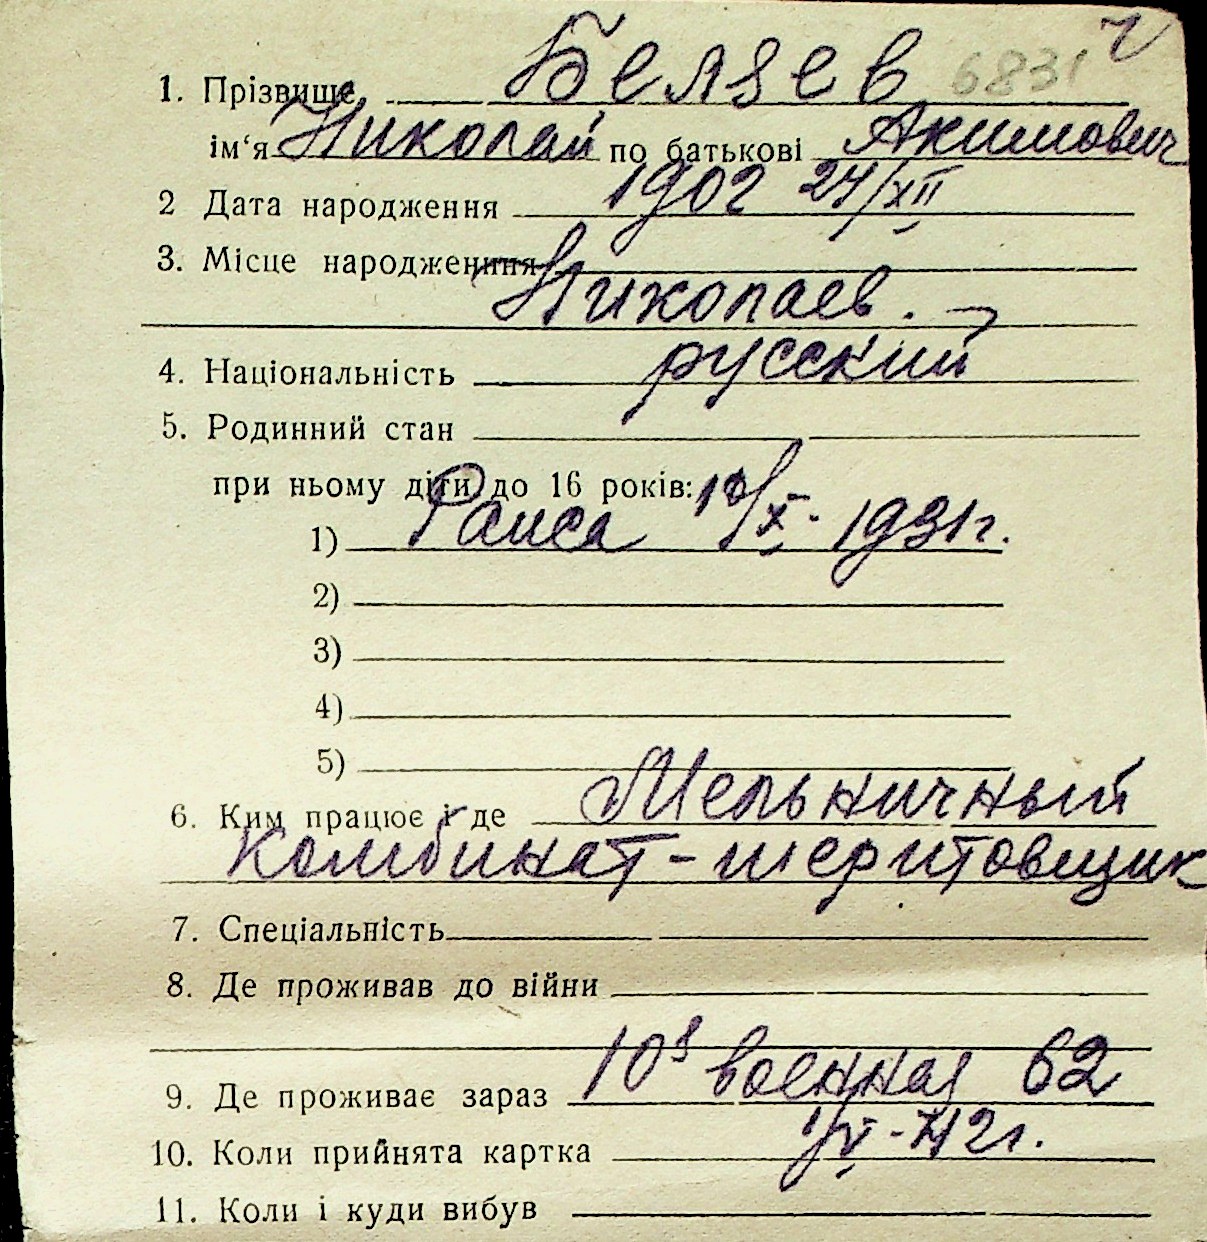 ч
1. Прізвище Беляев 6831
ім‘я Николай по батькові Акимович
2 Дата народження 1902 24/XII
3. Місце народження
Николаев.
4. Національність русский
5. Родинний стан
при ньому діти до 16 років:
1) Раиса 10/X. 1931г.
2)
3)
4)
5)
6. Ким працює і де Мельничный
комбинат - шеритовщик
7. Спеціальність
8. Де проживав до війни
9. Де проживає зараз 10я военная 62
10. Коли прийнята картка 1/V-42г.
11. Коли і куди вибув